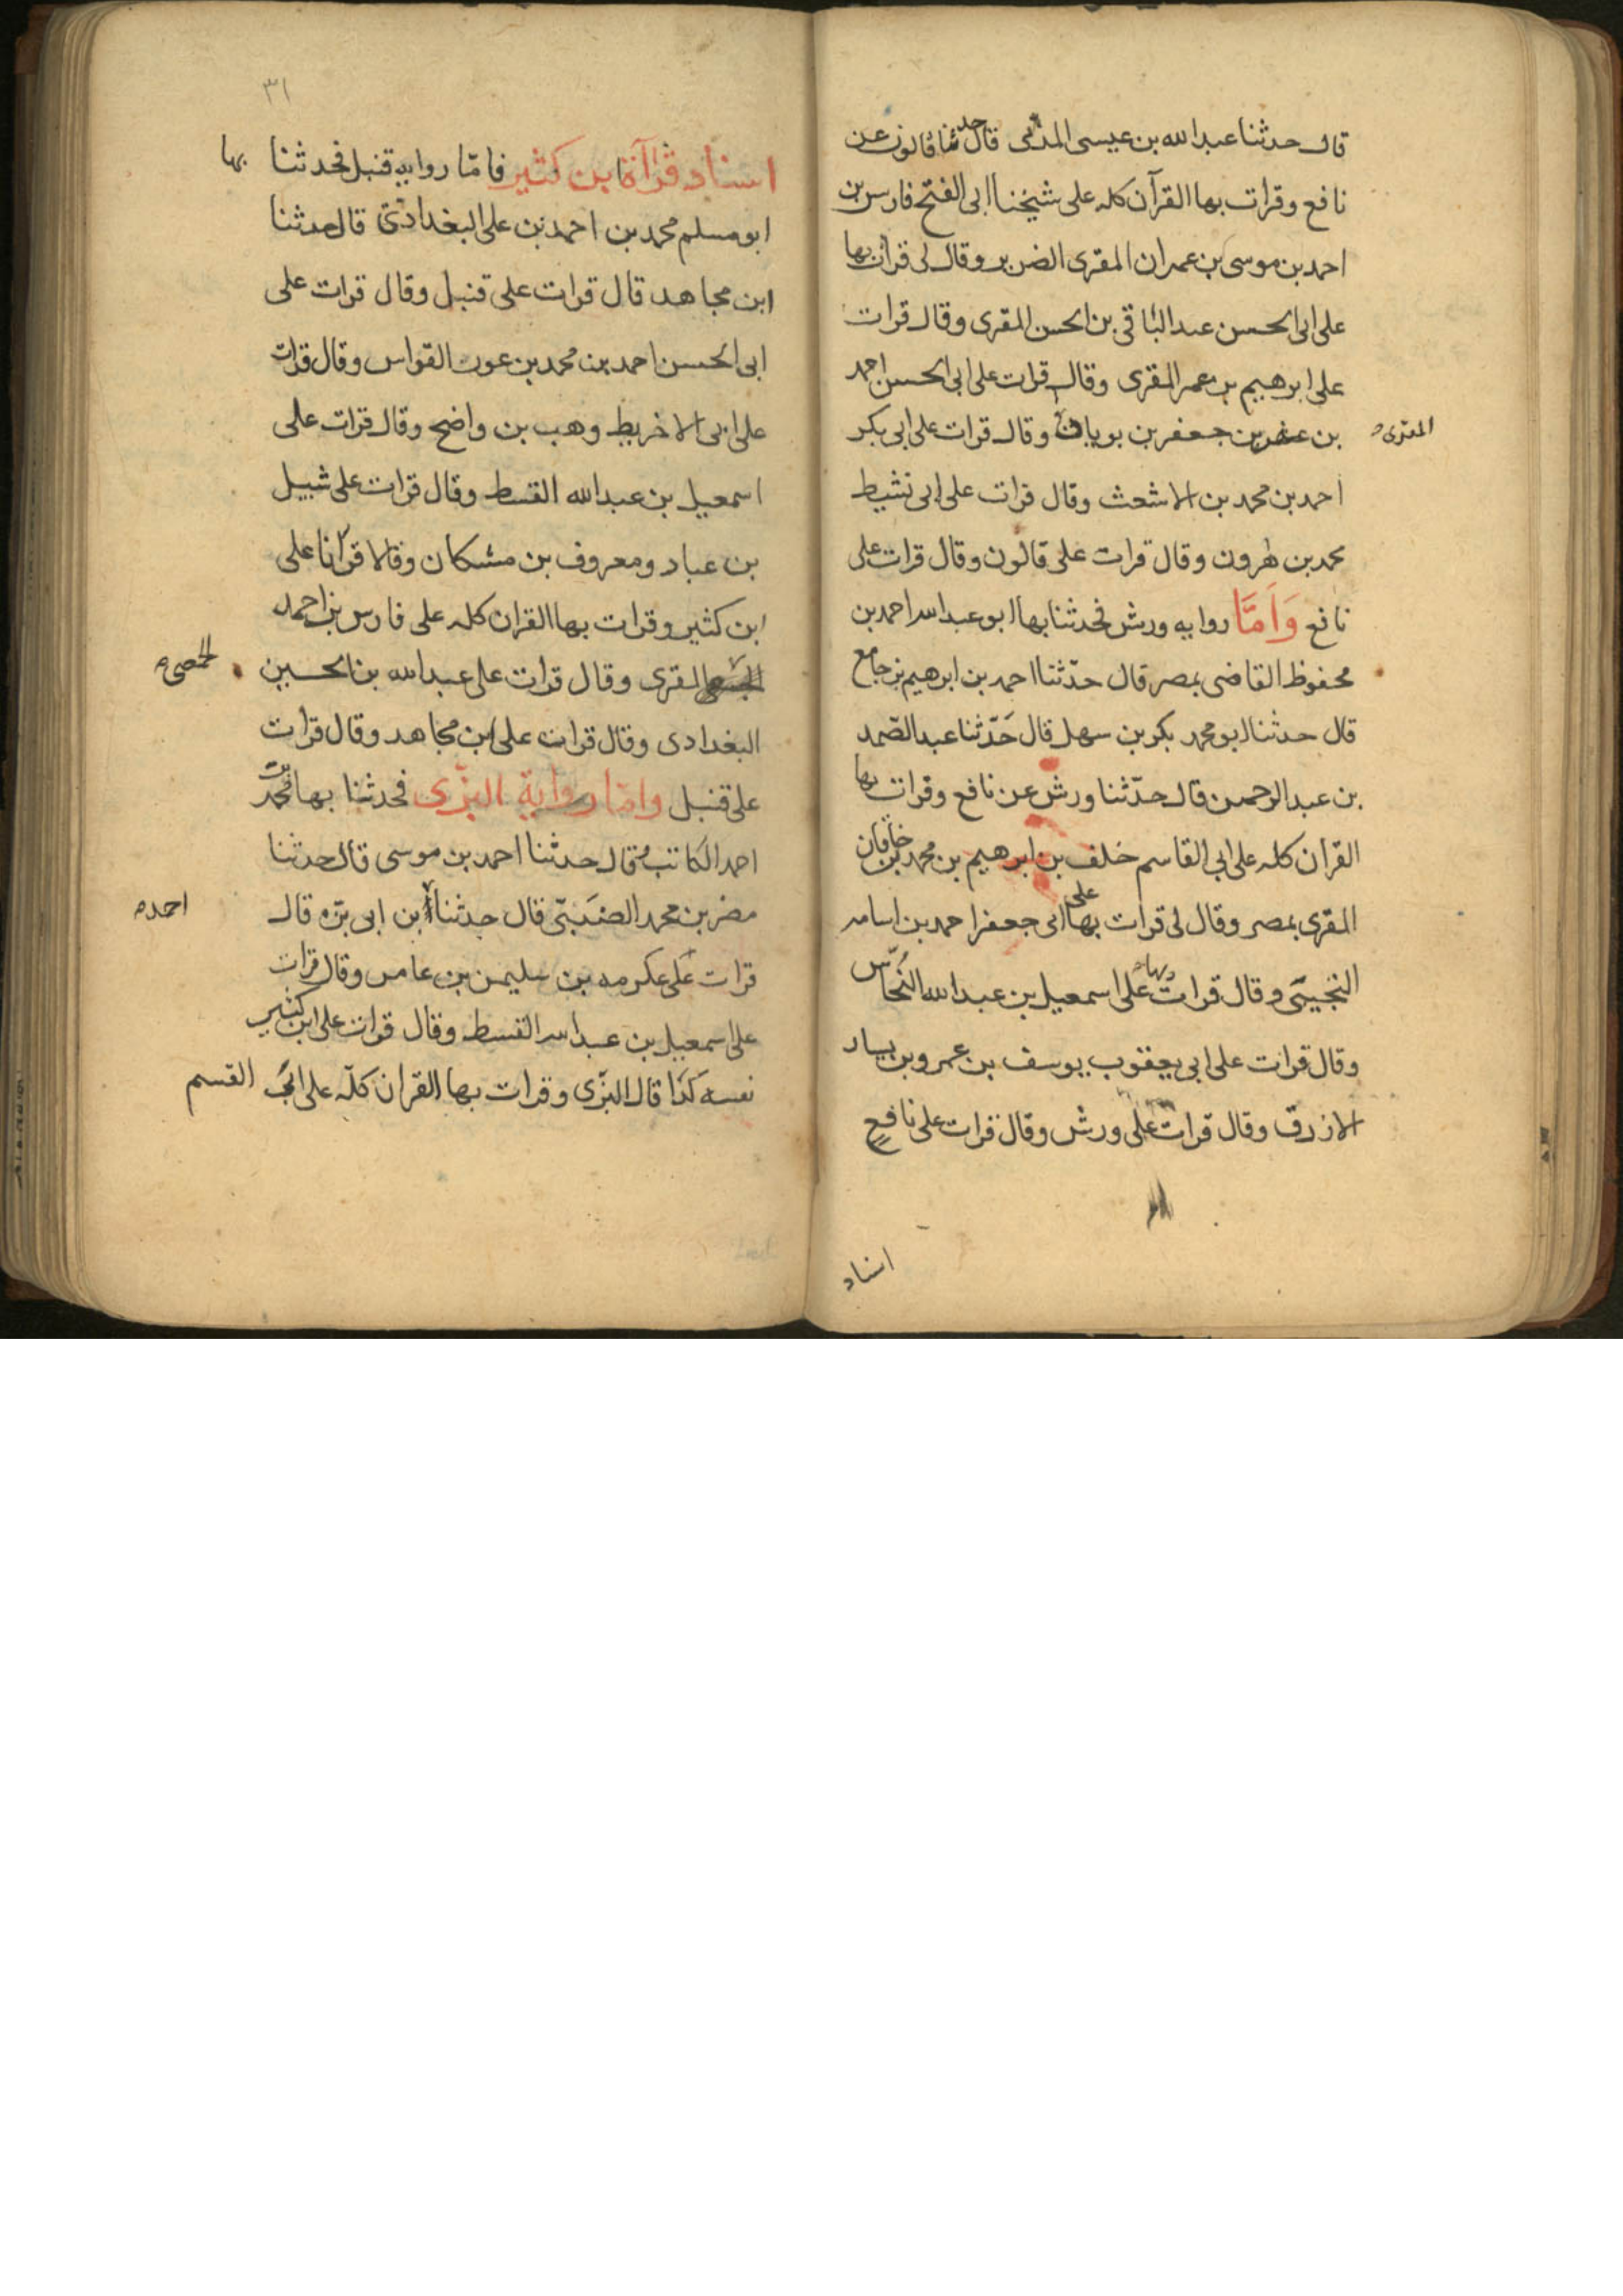 قال حدثنا عبدالله بن عيسى المدنى قال حدثنا قالون عن
نافع وقرات بها القرآن كله على شيخنا ابى الفتح فارس بن
احمد بن موسى بن عمران المقرى الضرير وقال لى قرات بها
على ابى الحسن عبد الباقى بن الحسن المقرى وقال قرات
على ابرهيم بن عمر المقرى وقال قرات على ابى الحسين احمد
بن عثمن بن جعفر بن بويان وقال قرات على ابى بكر
المقرى
احمد بن محمد بن الاشعث وقال قرات على ابى نشيط
محمد بن هرون وقال قرات على قالون وقال قرات على
نافع وَاَمَّا روايه ورش فحدثنا بها ابو عبدالله احمد بن
محفوظ القاضى بمصر قال حدّثنا احمد بن ابرهيم بن جامع
قال حدثنا ابو محمد بكر بن سهل قال حَدّثنا عبد الصّمد
بن عبد الرحمن قال حدّثنا ورش عن نافع وقرات بها
القران كله على ابى القاسم خلف بن ابرهيم بن محمد بن خاقان
المقرى بمصر وقال لى قرات بها على ابى جعفر احمد بن اسامه
التجيبّى وقال قرات بها على اسمعيل بن عبدالله النحّاس
وقال قرات على ابى يعقوب يوسف بن عمرو بن يسار
الازرق وقال قرات على ورش وقال قرات على نافعٍ
اسناد
٣١
اسناد قرآة ابن كثير فامّا روايه قنبل فحدثنا بها
ابو مسلم محمد بن احمد بن على البغدادى قال حدثنا
ابن مجاهد قال قرات على قنبل وقال قرات على
ابى الحسن احمد بن محمد بن عون القواس وقال قرات
على ابى الاخريط وهب بن واضح وقال قرات على
اسمعيل بن عبدالله القسط وقال قرات على شبيل
بن عباد ومعروف بن مشكان وقالا قرآنا على
ابن كثير وقرات بها القران كله على فارس بن احمد
الحمصى
المقرى وقال قرات على عبدالله بن الحسين
البغدادى وقال قرات على ابن مجاهد وقال قرات
على قنبل وامّا رواية البزّى فحدثنا بها محمد بن
احمد الكاتب قال حدثنا احمد بن موسى قال حدثنا
مضر بن محمد الضبّى قال حدثنا ابن ابى بزه قال
احمد
قرات على عكرمه بن سليمن بن عامر وقال قرات
على اسمعيل بن عبدالله القسط وقال قرات على ابن كثير
نفسه كذا قال البزّى وقرات بها القران كلّه على ابى القسم